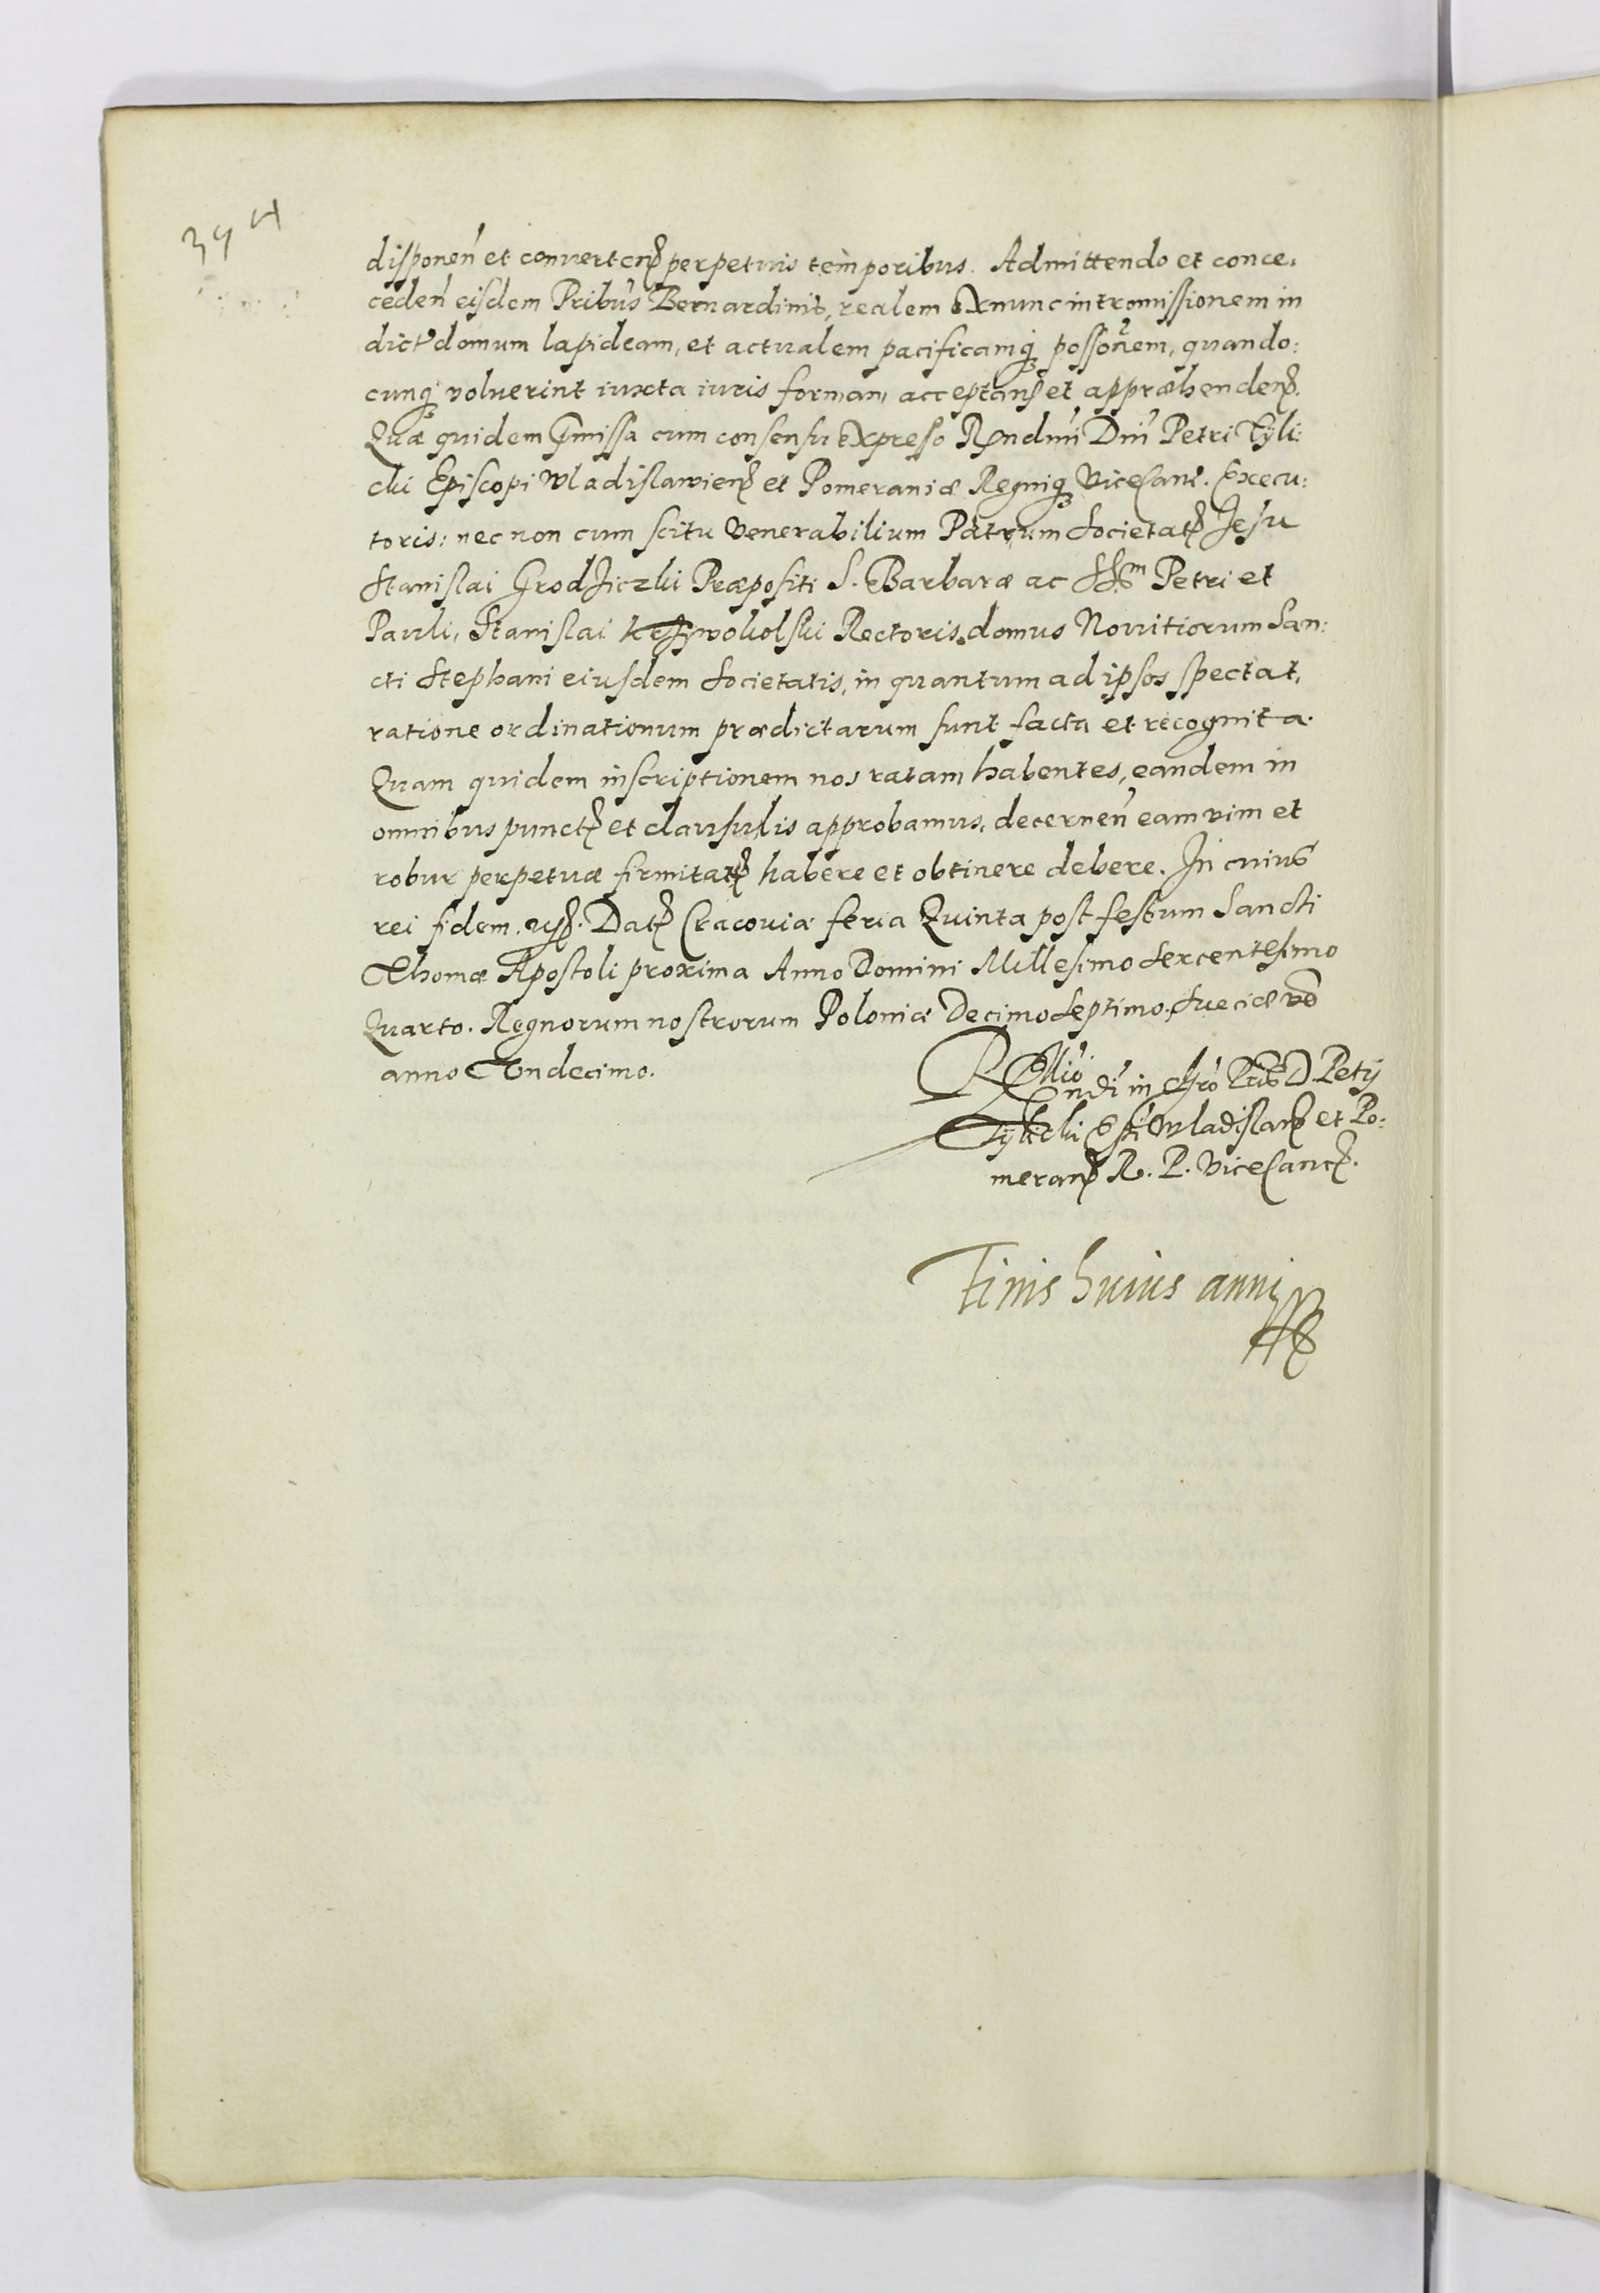 394
disponen et conuertenꝭ perpetuis temporibus. Admittendo et conce,
ceden eisdem Pribus Bernardinis, realem exnunc intromissionem in
dict domum lapideam, et actualem pacificamqꝫ possonem, quando:
cunqꝫ voluerint iuxta iuris formam acceptanꝭ et appræhendenꝭ.
Quæ quidem pmissa cum consensu expresso Rndmi Dni Petri Tyli:
cki Episcopi Wladislawienꝭ et Pomeraniæ Regniqꝫ Vicecanc. Execu:
toris: nec non cum scitu Venerabilium Patrum Societatꝭ Jesu
Stanislai Grodziczki Præpositi S. Barbaræ ac SS.m Petri et
Pauli, Stanislai Rectoris domus Nouitiorum San:
cti Stephani eiusdem Societatis, in quantum ad ipsos spectat,
ratione ordinationum prædictarum sunt facta et recognita.
Quam quidem inscriptionem nos ratam habentes, eandem in
omnibus punctꝭ et clausulis approbamus, decernen eam vim et
robur perpetuæ firmitatꝭ habere et obtinere debere. In cuius
rei fidem. Datꝭ Cracouiæ feria Quinta post festum Sancti
Thomæ Apostoli proxima Anno Domini Millesimo Sexcentesimo
Quarto. Regnorum nostrorum Poloniæ Decimo Septimo, Sueciæ vo
anno Vndecimo.
Rllio
ndi in Chro Pris D. Petri
Tylicki Epi Wladislauꝭ et Po:
meranꝭ R. P. Vicecancꝭ.
Finis huius anni